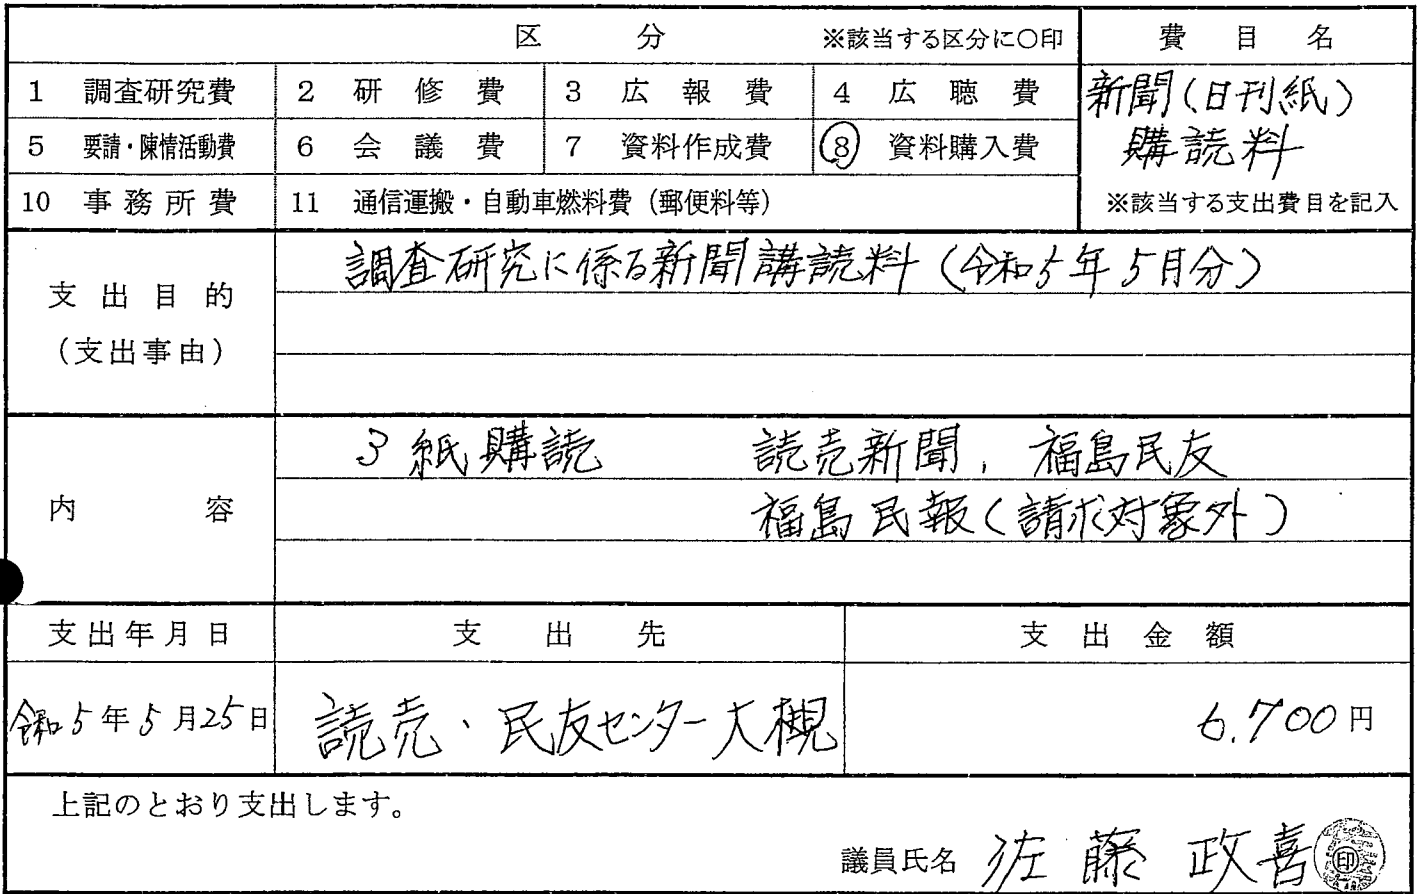 区 分 ※該当する区分に〇印 費 目 名
1 調査研究費 2 研 修 費 3 広 報 費 4 広 聴 費
新聞(日刊紙)
5 要請・陳情活動費 6 会 議 費 7 資料作成費 8 資料購入費
購読料
10 事 務 所 費 11 通信運搬・自動車燃料費(郵便料等)
※該当する支出費目を記入
支 出 目 的
(支出事由)
調査研究に係る新聞講読料(令和5年5月分)
内 容
3紙購読 読売新聞, 福島民友
福島民報(請求対象外)
支出年月日 支 出 先 支 出 金 額
令和5年5月25日 読売・民友センター大槻 6.700円
上記のとおり支出します。
議員氏名 佐藤 政喜 印